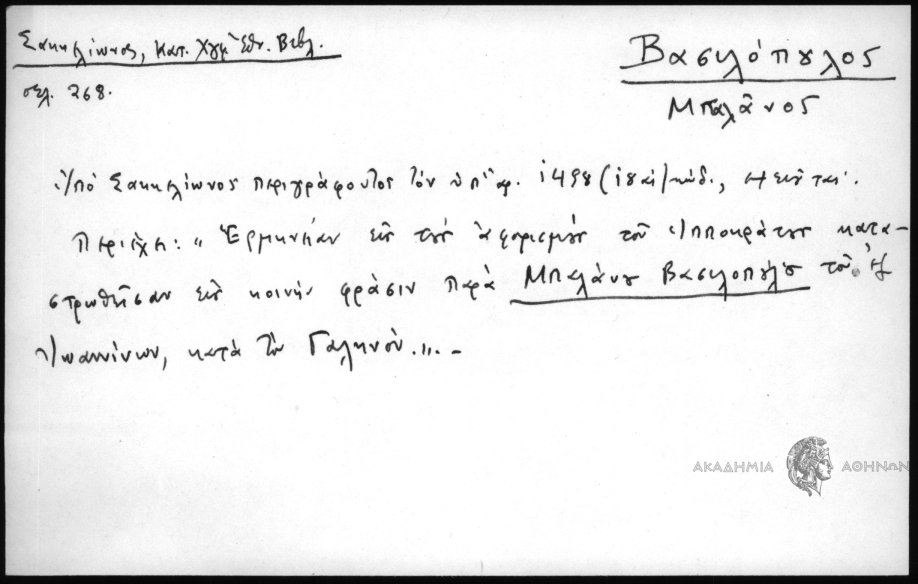 Σακκελίωνος, Κατ. Χγρ. Ἐθν. Βιβλ.
σελ. 268.
Βασιλόπουλος
Μπαλᾶνος
Ὑπό Σακκελίωνος περιγράφοντος τὸν ὑπ' ἀρ. 1498 κώδ.,
Περιέχει: "Ἑρμηνείαν εἰς τοὺς ἀφορισμοὺς τοῦ Ἱπποκράτους κατα-
στρωθεῖσαν εἰς κοινὴν φράσιν παρὰ Μπαλάνου Βασιλοπούλου τοῦ ἐξ
Ἰωαννίνων, κατὰ τὸν Γαληνὸν..."
ΑΚΑΔΗΜΙΑ ΑΘΗΝΩΝ